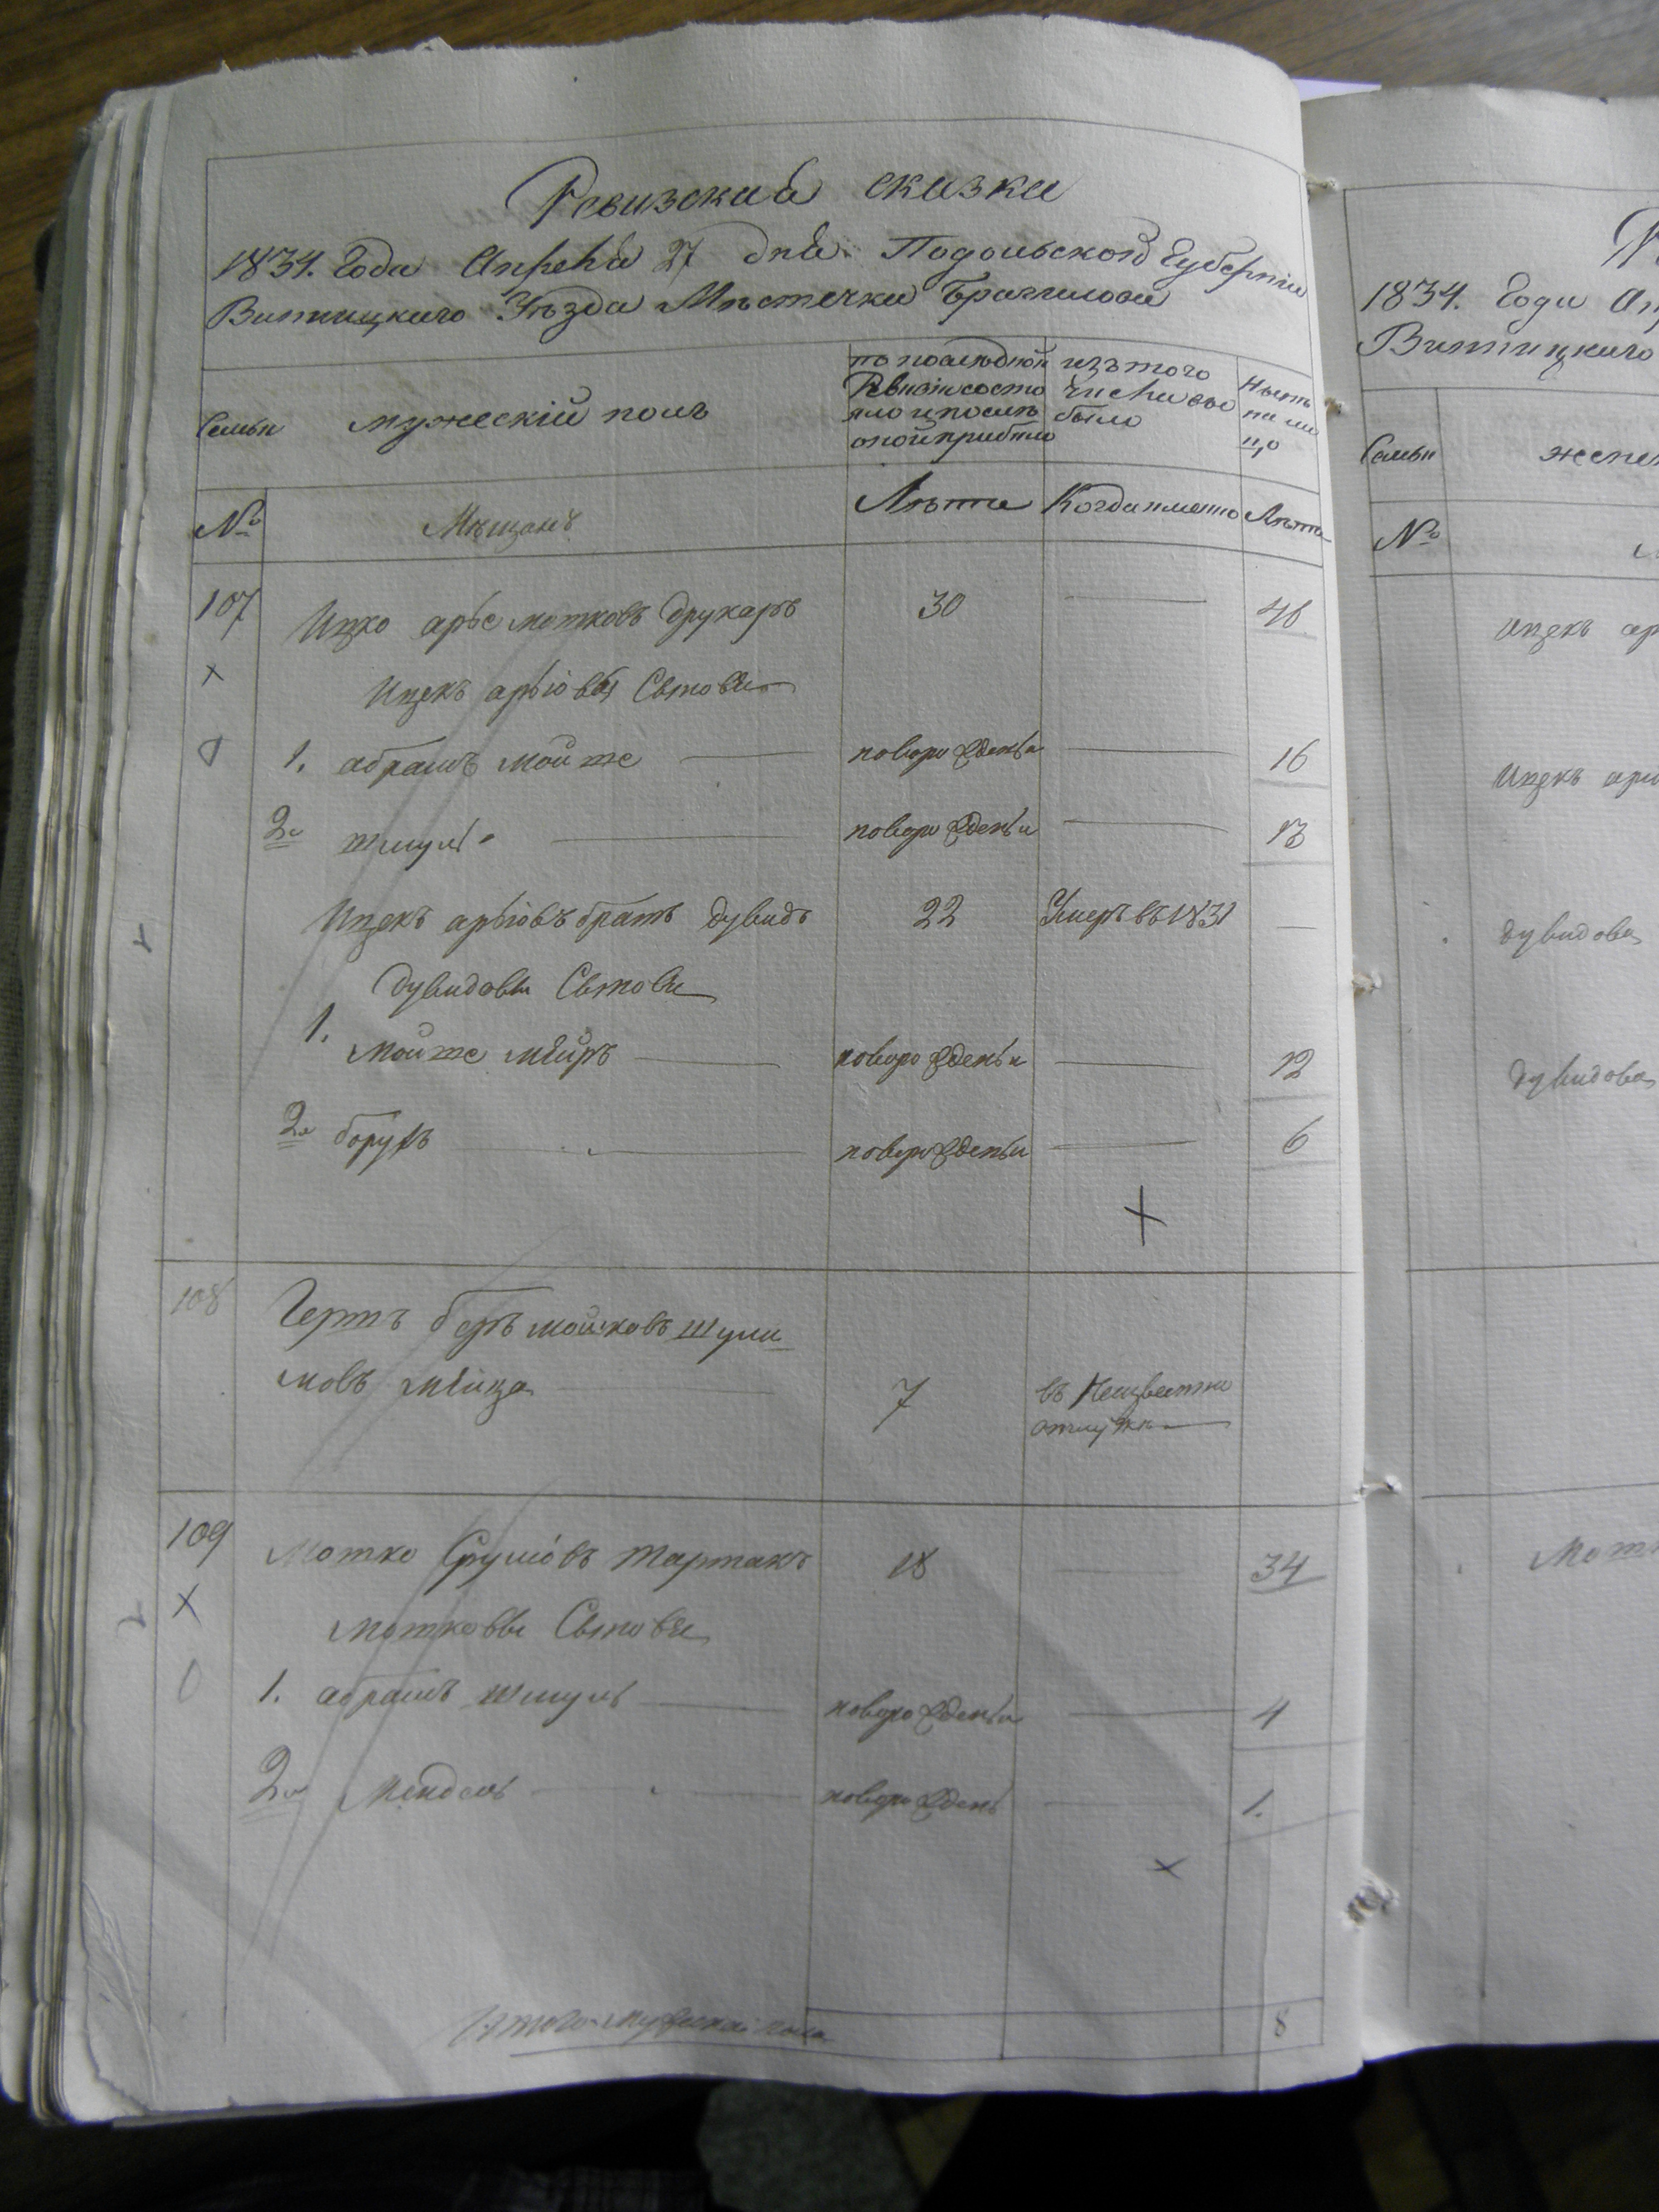 Ревизская сказка
1834. Года Апреля 27 дня. Подольской Губерніи
Винницкаго Уѣзда Мѣстечка Браилова
Семьи
мужескій полъ
по последной Ревизіи состояло и послѣ оной прибыло
изъ того числа выбыло
Нынѣ на лицо
№
Мѣщанъ
Лѣта
Когда именно
Лѣта
107
Ицко арье мотковъ друкаръ
30
46
Ицекъ арьіовы Сынове
1. абрамъ мойше
новорожденъи
16
2й шмуль
новорожденъи
13
Ицекъ арьіовъ братъ дувидъ
22
Умеръ въ 1831
дувидовы Сынове
1. мойше мейръ
новорожденъи
12
2й борухъ
новорожденъи
6
108
беръ мошковъ шули
мовъ
7
въ Неизвестни
отлучки
109
мотко Срулiовъ тартакъ
18
34
мотковы Сынове
1. абрамъ шмуль
новорожденъи
4
2й Мендель
новорождень
1.
Итого мужеска пола
8
1834. Года Ап
Винницкаго
Семьи
жен
№
Ицекъ ар
Ицекъ арь
дувидова
дувидова
Мотк